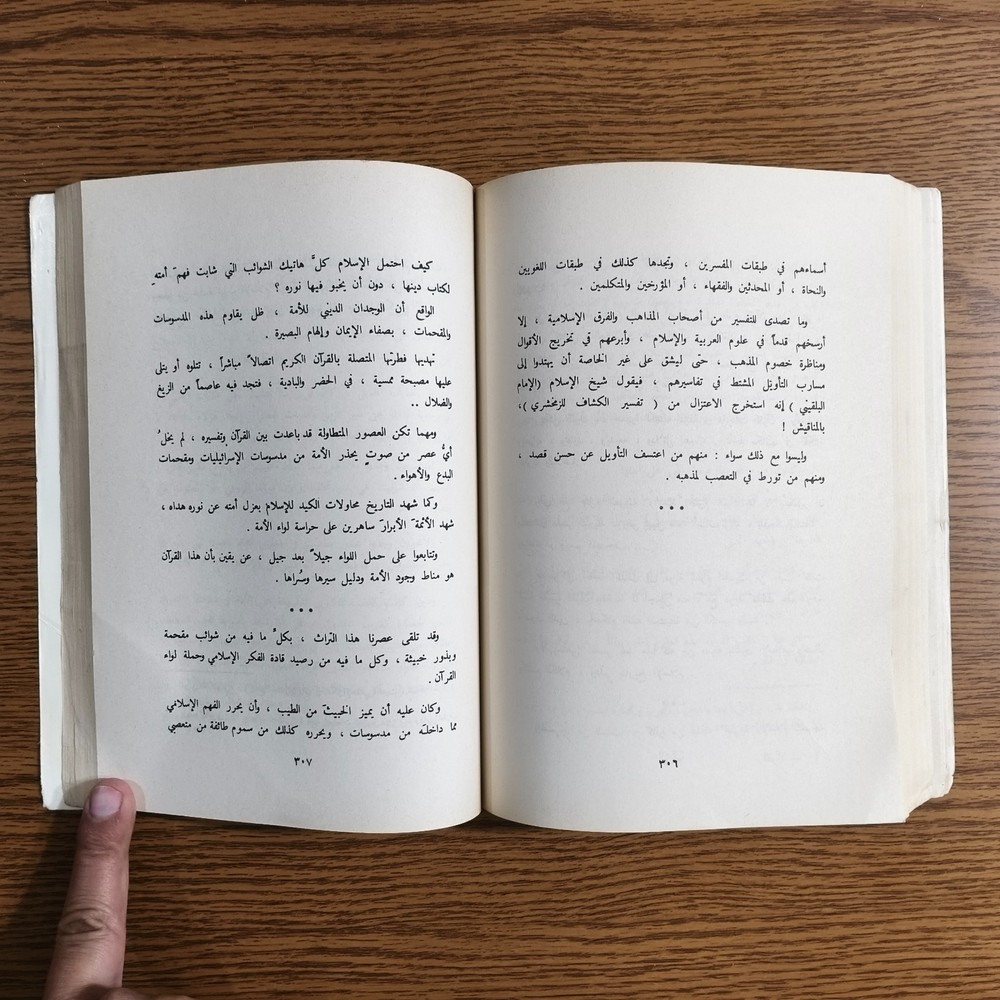 أسماءهم في طبقات المفسرين ، ونجدها كذلك في طبقات اللغويين
والنحاة ، أو المحدثين والفقهاء ، أو المؤرخين والمتكلمين .
وما تصدى للتفسير من أصحاب المذاهب والفرق الإسلامية ، إلا
أرسخهم قدماً في علوم العربية والإسلام ، وأبرعهم في تخريج الأقوال
ومناظرة خصوم المذهب ، حتى ليشق على غير الخاصة أن يهتدوا إلى
مسارب التأويل المشتط في تفاسيرهم ، فيقول شيخ الإسلام (الإمام
البلقيني ) إنه استخرج الاعتزال من ( تفسير الكشاف للزمخشري )،
بالمناقيش !
وليسوا مع ذلك سواء : منهم من اعتسف التأويل عن حسن قصد ،
ومنهم من تورط في التعصب لمذهبه .
•••
٣٠٦
كيف احتمل الإسلام كلَّ هاتيك الشوائب التي شابت فهمَ أمتهِ
لكتاب دينها ، دون أن يخبو فيها نوره ؟
الواقع أن الوجدان الديني للأمة ، ظل يقاوم هذه المدسوسات
والمقحمات ، بصفاء الإيمان وإلهام البصيرة .
تهديها فطرتها المتصلة بالقرآن الكريم اتصالاً مباشراً ، تتلوه أو يتلى
عليها مصبحة ممسية ، في الحضر والبادية ، فتجد فيه عاصماً من الزيغ
والضلال ..
ومهما تكن العصور المتطاولة قد باعدت بين القرآن وتفسيره ، لم يخلُ
أيُّ عصر من صوتٍ يحذر الأمة من مدسوسات الإسرائيليات ومقحمات
البدع والأهواء .
وكما شهد التاريخ محاولات الكيد للإسلام بعزل أمته عن نوره هداه ،
شهد الأئمةَ الأبرارَ ساهرين على حراسة لواء الأمة .
وتتابعوا على حمل اللواء جيلاً بعد جيل ، عن يقين بأن هذا القرآن
هو مناط وجود الأمة ودليل سيرها وسُراها .
•••
وقد تلقى عصرنا هذا التراث ، بكلِّ ما فيه من شوائب مقحمة
وبذور خبيثة ، وكل ما فيه من رصيد قادة الفكر الإسلامي وحملة لواء
القرآن .
وكان عليه أن يميز الخبيثَ من الطيب ، وأن يحرر الفهم الإسلامي
مما داخلَه من مدسوسات ، ويحرره كذلك من سموم طائفة من متعصبي
٣٠٧